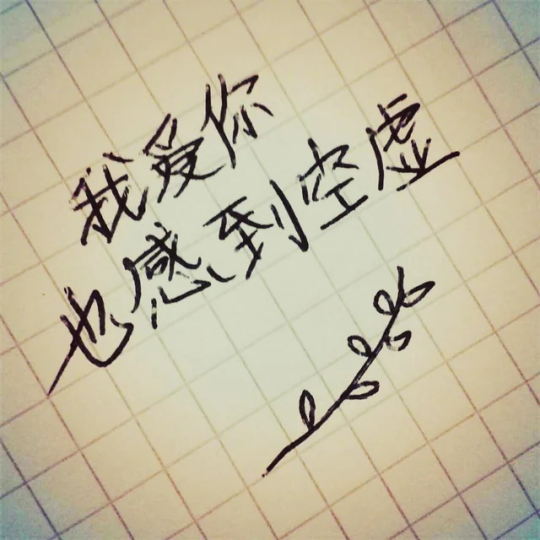 我爱你
也感到空虚